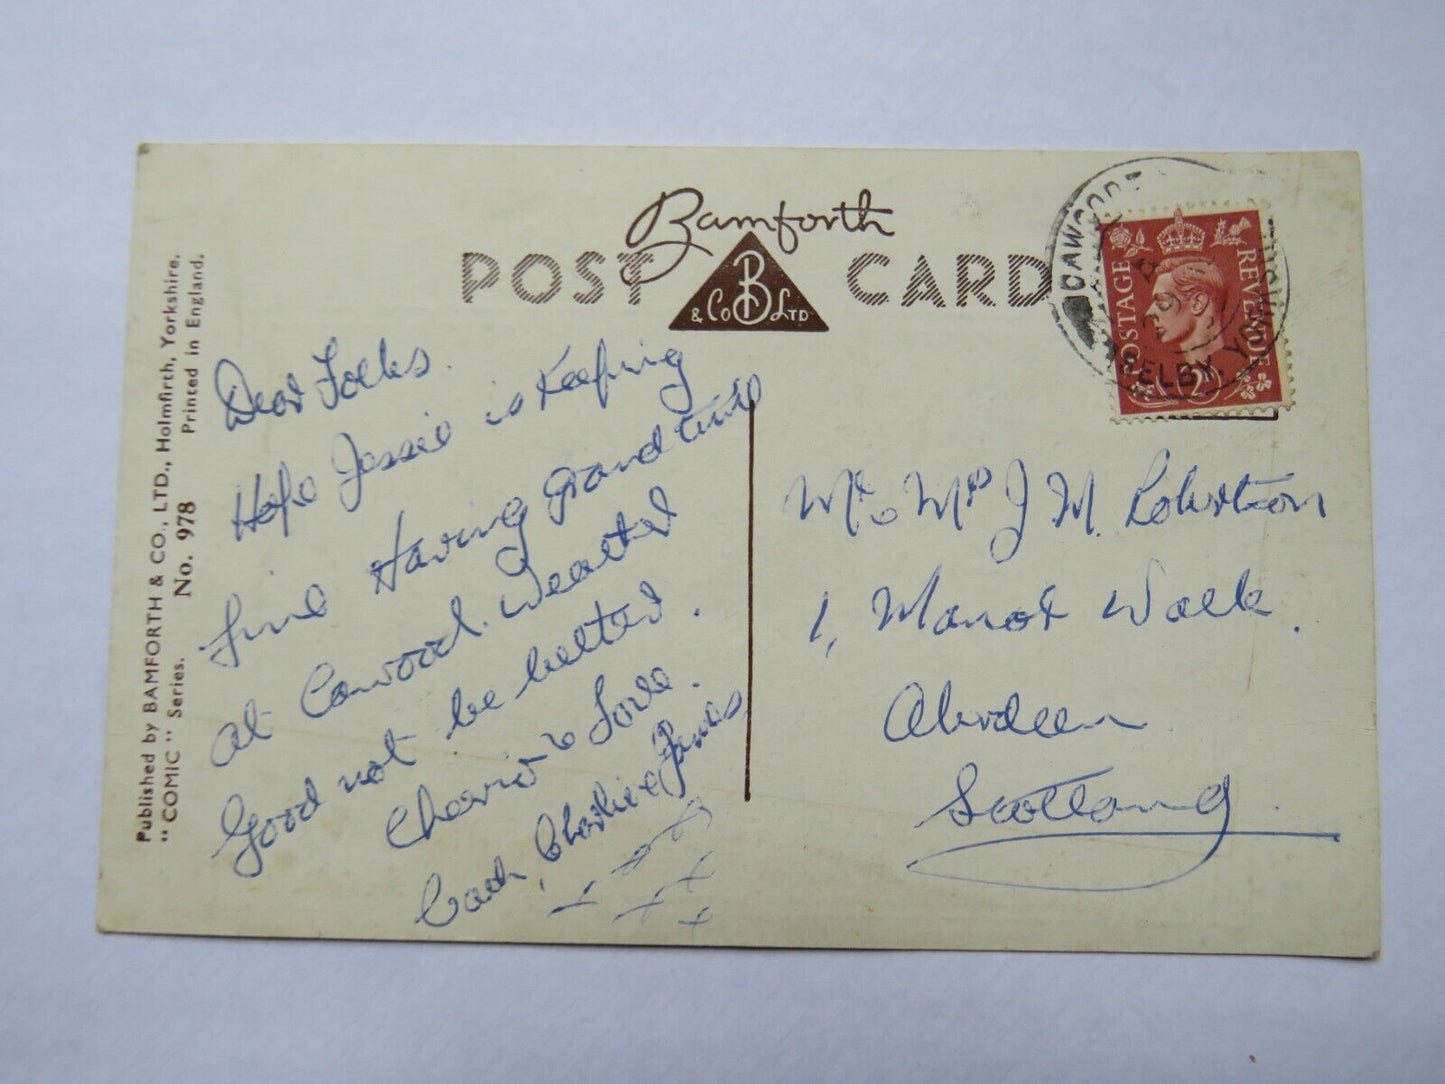 Published by BAMFORTH & CO., LTD., Holmfirth, Yorkshire.
"COMIC" Series. No. 978 Printed in England.
Bamforth
POST CARD
B
& Co LTD
CAWOOD
SELBY, YORKSHIRE
29
POSTAGE REVENUE
2D
Dear Folks.
Hope Jessie is Keeping
fine Having grand time
at Cawood. Weather
Good not be better.
Cheerio & Love.
Charlie & James
Mr & Mrs J M. Robertson
1, Manor Walk.
Aberdeen
Scotland.